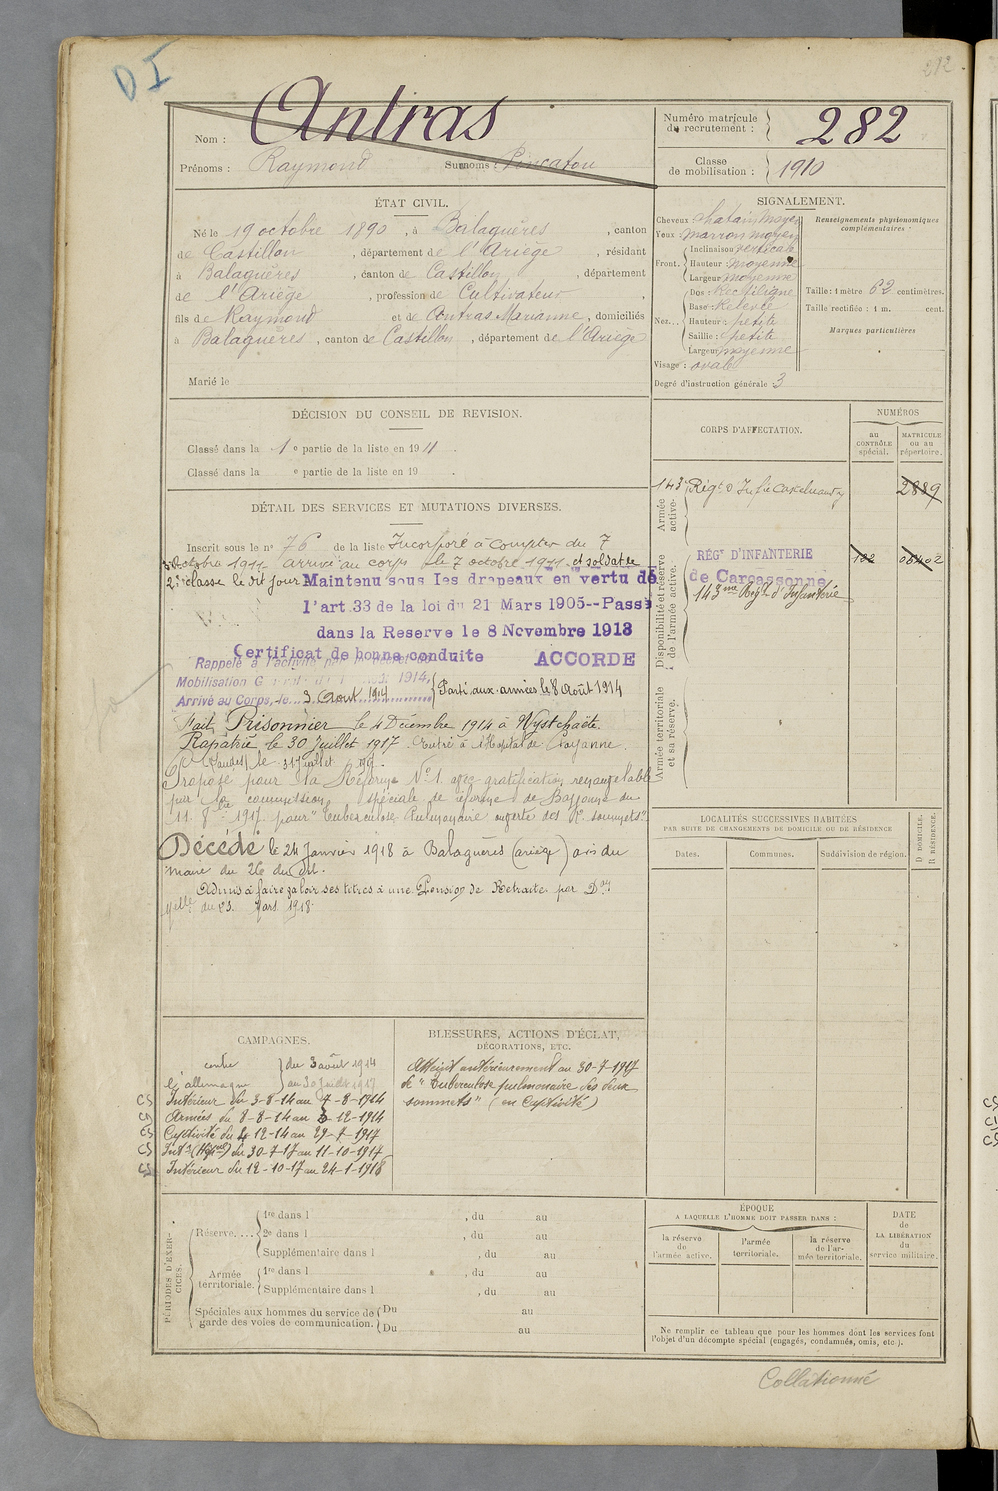 D I
282
Nom : Antras
Prénoms : Raymond Surnoms : Poncatou
Numéro matricule du recrutement : 282
Classe de mobilisation : 1910
ÉTAT CIVIL.
Né le 19 octobre 1890, à Balaguères, canton
de Castillon, département de l'Ariège, résidant
à Balaguères, canton de Castillon, département
de l'Ariège, profession de Cultivateur,
fils de Raymond et de Contras Marianne, domiciliés
à Balaguères, canton de Castillon, département de l'Ariège
Marié le
SIGNALEMENT.
Cheveux : chatain moyen
Yeux : marron moyen
Front. Inclinaison verticale
Hauteur : moyenne
Largeur moyenne
Nez... Dos : Rectiligne
Base : Relevée
Hauteur : petite
Saillie : petite
Largeur moyenne
Visage : ovale
Degré d'instruction générale : 3
Renseignements physionomiques complémentaires :
Taille : 1 mètre 62 centimètres.
Taille rectifiée : 1 m. cent.
Marques particulières
DÉCISION DU CONSEIL DE REVISION.
Classé dans la 1e partie de la liste en 1911.
Classé dans la e partie de la liste en 19 .
CORPS D'AFFECTATION.
NUMÉROS
au CONTRÔLE spécial.
MATRICULE ou au répertoire.
Armée active.
143e Régt d'Infie Castelnaudary 2889
Disponibilité et réserve de l'armée active.
RÉGT D'INFANTERIE
de Carcassonne
143me Régt d'Infanterie
Armée territoriale et sa réserve.
DÉTAIL DES SERVICES ET MUTATIONS DIVERSES.
Inscrit sous le n° 76 de la liste Incorporé à compter du 7
octobre 1911 arrivé au corps le 7 octobre 1911 et soldat de
2e classe le dit jour Maintenu sous les drapeaux en vertu de
l'art. 33 de la loi du 21 Mars 1905--Passé
dans la Reserve le 8 Novembre 1913
Certificat de bonne conduite ACCORDE
Rappelé à l'activité
Mobilisation 1914,
Arrivé au Corps, le 3 Août 1914 Parti aux armées le 8 Août 1914
Fait Prisonnier le 4 Décembre 1914 à Wystchaëte.
Rapatrié le 30 Juillet 1917. Entré à l'Hopital de
(Landes) le 31 juillet
Proposé pour la Réforme N° 1 avec gratification renouvelable
par la commission spéciale de réforme de Bayonne du
11 8bre 1917 pour "Tuberculose Pulmonaire ouverte des 2 sommets"
Décédé le 24 Janvier 1918 à Balaguères (ariège) avis du
maire du 26 du dit.
Admis à faire valoir ses titres à une Pension de Retraite par Don
Mlle du 23 Mars 1918
LOCALITÉS SUCCESSIVES HABITÉES
PAR SUITE DE CHANGEMENTS DE DOMICILE OU DE RÉSIDENCE
Dates. Communes. Subdivision de région.
D DOMICILE.
R RÉSIDENCE.
CAMPAGNES.
contre l'allemagne du 3 août 1914
au 30 Juillet 1917
CS Intérieur du 3-8-14 au 7-8-1914
CS Armées du 8-8-14 au 3-12-1914
CS Captivité du 4-12-14 au 29-7-1917
CS Intr (Hôpal) du 30-7-17 au 11-10-1917
CS Intérieur du 12-10-17 au 24-1-1918
BLESSURES, ACTIONS D'ÉCLAT,
DÉCORATIONS, ETC.
Atteint antérieurement au 30-7-1917
de "Tuberculose pulmonaire des deux
sommets" (en Captivité)
PÉRIODES D'EXERCICES.
Réserve.... 1re dans l , du au
2e dans l , du au
Supplémentaire dans l , du au
Armée territoriale. 1re dans l , du au
Supplémentaire dans l , du au
Spéciales aux hommes du service de garde des voies de communication. Du au
Du au
ÉPOQUE
A LAQUELLE L'HOMME DOIT PASSER DANS :
la réserve de l'armée active.
l'armée territoriale.
la réserve de l'armée territoriale.
DATE de LA LIBÉRATION du service militaire.
Ne remplir ce tableau que pour les hommes dont les services font
l'objet d'un décompte spécial (engagés, condamnés, omis, etc.).
Collationné